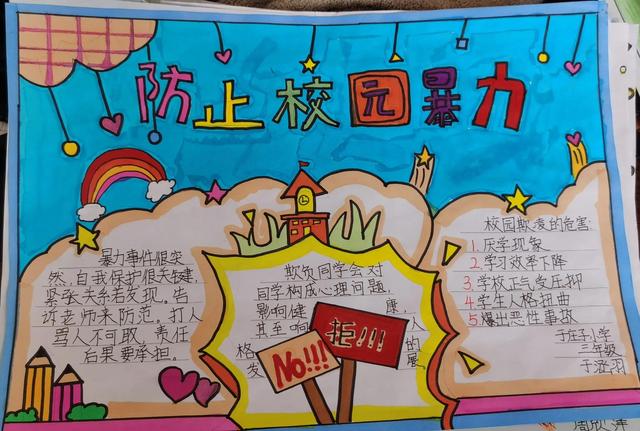 防止校园暴力
暴力事件很突
然，自我保护很关键，
紧张关系若发现。告
诉老师来防范。打人
骂人不可取，责任
后果要承担。
欺负同学会对
同学构成心理问题，
影响健 康，
甚至响 人
格 的
发 展
No!!!
拒!!!
校园欺凌的危害:
1.厌学现象
2.学习效率下降
3.学校正气受压抑
4.学生人格扭曲
5.爆出恶性事故
于庄子小学
三年级